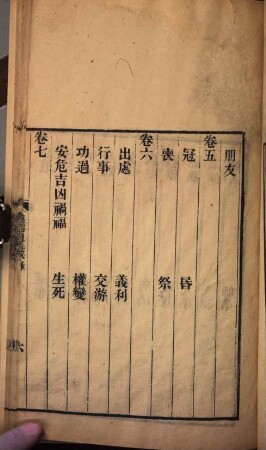 朋友
卷五
冠 昏
喪 祭
卷六
出處 義利
行事 交游
功過 權變
安危吉凶禍福 生死
卷七